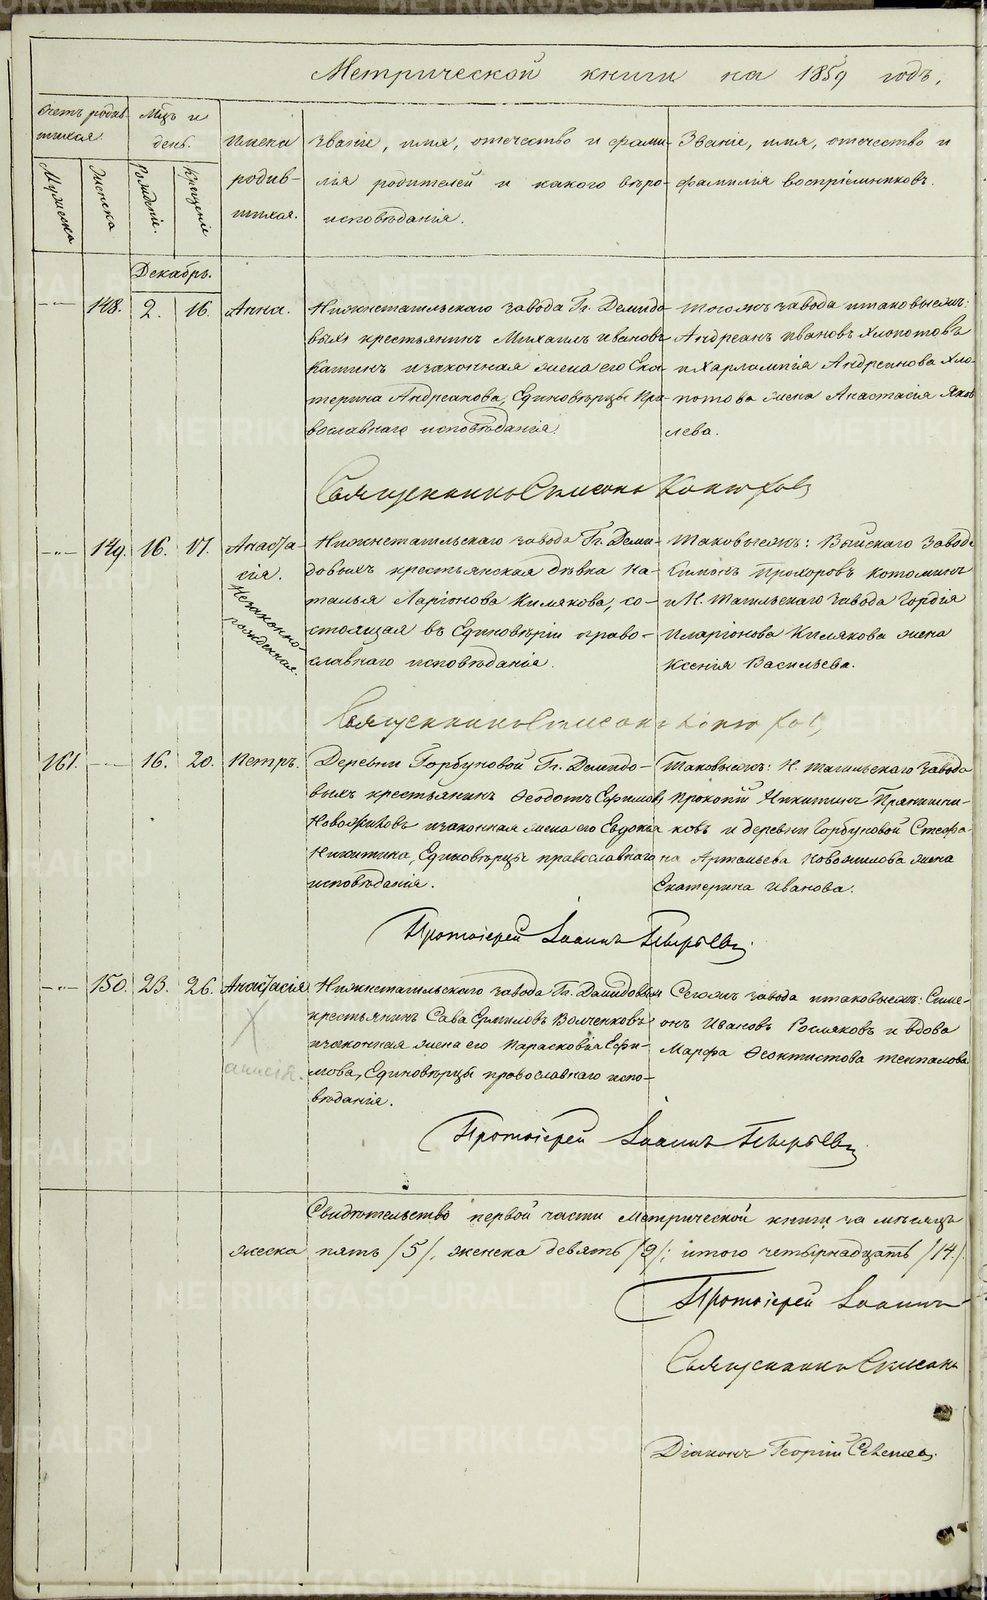 Метрической книги на 1859 годъ.
Счетъ родив-
шихся.
Мцъ и
день.
Имена
родив-
шихся.
Званіе, имя, отчество и фами-
лія родителей и какого вѣро-
исповѣданія.
Званіе, имя, отчество и
фамилія воспріемниковъ.
Мужеска
Женска
Рожденіе.
Крещеніе
Декабрь.
148. 2. 16. Анна.
Нижнетагильскаго завода Гг. Демидо
выхъ крестьянинъ Михаилъ Ивановъ
Катинъ и законная жена его Ека-
терина Андреанова, Единовѣрцы Пра-
вославнаго исповѣданія.
тогожъ завода итаковыежъ:
Андреанъ Ивановъ Хлопотовъ
и Харлампія Андреянова Хло-
потова жена Анастасія Яков
лева.
Священникъ Симеонъ Конюховъ
149. 16. 17. Анаста-
сія.
Незаконно-
рожденная.
Нижнетагильскаго завода Гг. Деми-
довыхъ крестьянская дѣвка На-
талья Ларіонова Килякова, со-
стоящая въ Единовѣріи право-
славнаго исповѣданія.
Таковыежъ: Выйскаго завода
Симонъ Прохоровъ Котоминъ
и Н. Тагильскаго завода Гордія
Иларіонова Килякова жена
Ксенія Васильева.
Священникъ Симеонъ Конюховъ
161. 16. 20. Петръ.
Деревни Горбуновой Гг. Демидо-
выхъ крестьянинъ Ѳеодотъ Ефимовъ
Новожиловъ и законная жена его Евдокія
Никитина, Единовѣрцы православнаго
исповѣданія.
Таковыежъ: Н. Тагильскаго завода
Прокопій Никитинъ Прянични-
ковъ и деревни Горбуновой Стефа-
на Артемьева Новожилова жена
Екатерина Иванова.
Протоіерей Іоаннъ Пырьевъ
150. 23. 26. Анастасія
Нижнетагильскаго завода Гг. Демидовыхъ
крестьянинъ Сава Ермиловъ Волченковъ
и законная жена его Парасковія Ефи-
мова, Единовѣрцы православнаго испо-
вѣданія.
Сегожъ завода итаковыежъ: Симе-
онъ Ивановъ Росляковъ и вдова
Марфа Ѳеоктистова
Протоіерей Іоаннъ Пырьевъ
Свидѣтельство первой части Метрической книги за мѣсяцъ
жеска пять /5/, женска девять /9/; итого четырнадцать /14/.
Протоіерей Іоаннъ
Священникъ Симеонъ
Діаконъ Георгій
METRIKI.GASO-URAL.RU